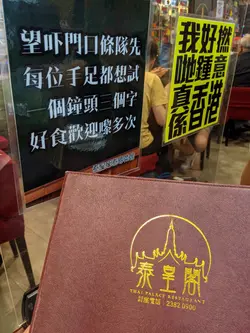 望吓門口條隊先
每位手足都想試
一個鐘頭三個字
好食歡迎嚟多次
我好撚
鍾意
香港
真係
泰皇閣
THAI PALACE RESTAURANT
訂座電話 : 2382 0500